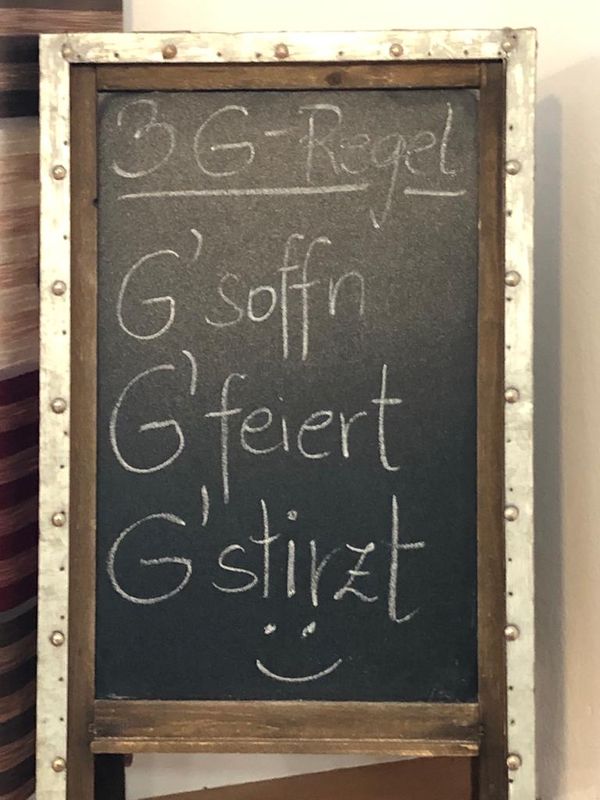 3 G-Regel
G'soffn
G'feiert
G'stirzt